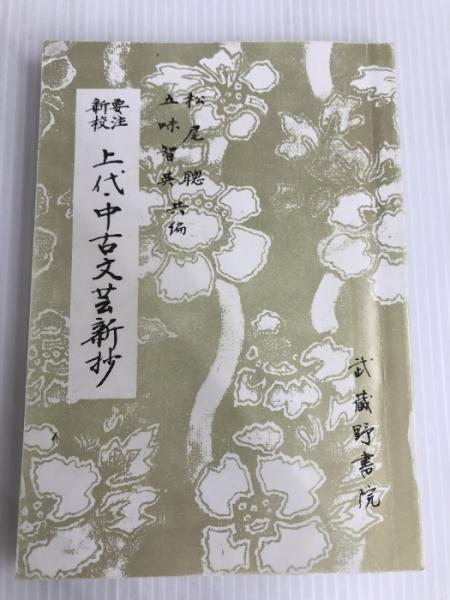 要注
新校
上代・中古文芸新抄
松尾聰
五味智英 共編
武蔵野書院